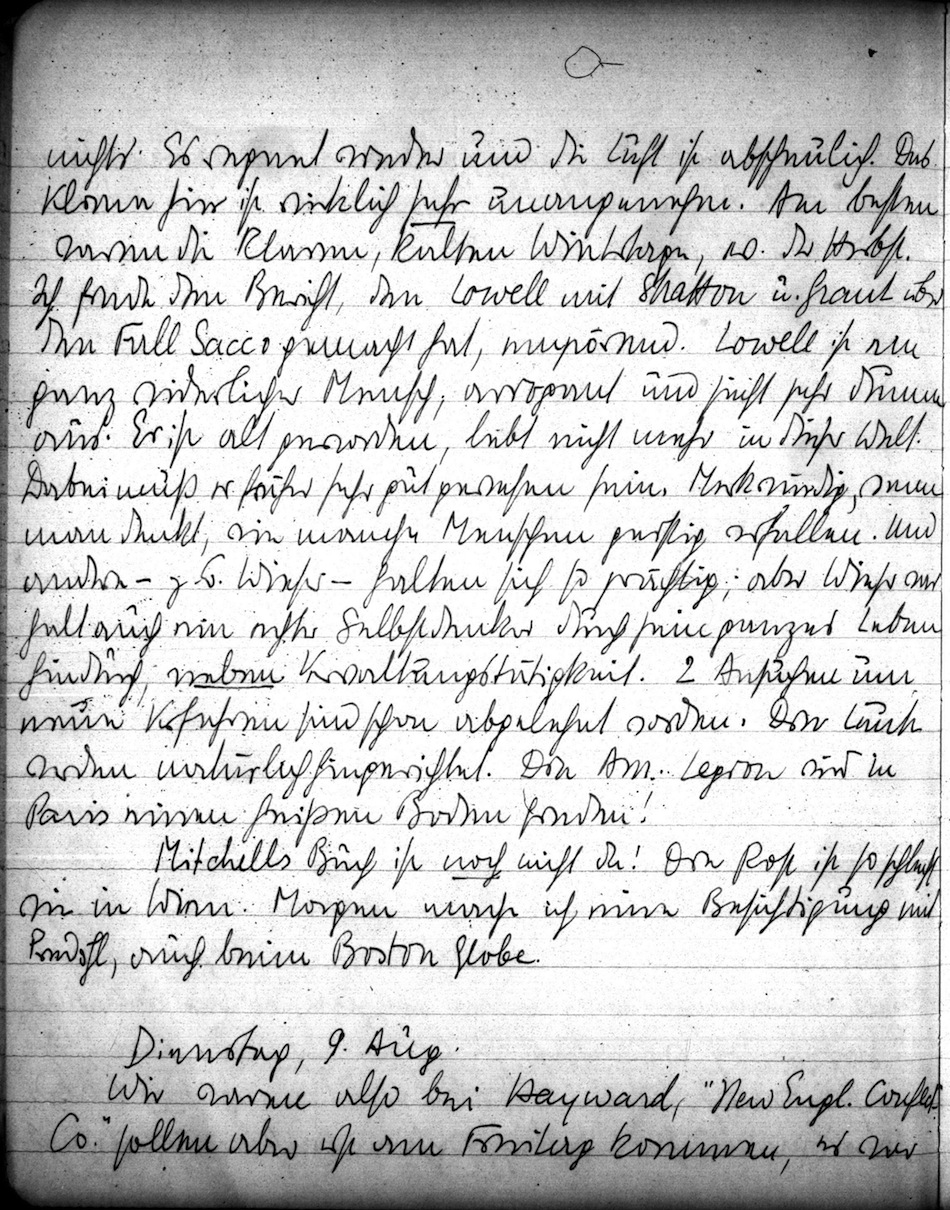 nichts. Es regnet wieder und die Luft ist abscheulich. Das
Klima hier ist wirklich sehr unangenehm. Am besten
waren die klaren, kalten Wintertage, u. der Herbst.
Ich finde den Bericht, den Lowell mit Stratton u. Grant über
den Fall Sacco gemacht hat, empörend. Lowell ist ein
ganz widerlicher Mensch, arrogant und sieht sehr dumm
aus. Er ist alt geworden, lebt nicht mehr in dieser Welt.
Dabei muß er früher sehr gut gewesen sein. Merkwürdig, wenn
man denkt, wie manche Menschen geistig verfallen. Und
andere – z. B. Wieser – halten sich so prächtig; aber Wieser war
halt auch ein echter Selbstdenker durch sein ganzes Leben
hindurch, neben Verwaltungstätigkeit. 2 Ansuchen um
neue Verfahren sind schon abgelehnt worden. Die Leute
werden natürlich hingerichtet. Die Am. Legion wird in
Paris einen heißen Boden finden!
Mitchells Buch ist noch nicht da! Die Post ist so schlecht
wie in Wien. Morgen mache ich eine Besichtigung mit
Predöhl, auch beim Boston Globe.
Dienstag, 9. Aug.
Wir waren also bei Hayward, "New Engl. Confect.
Co." sollen aber erst am Freitag kommen, er war